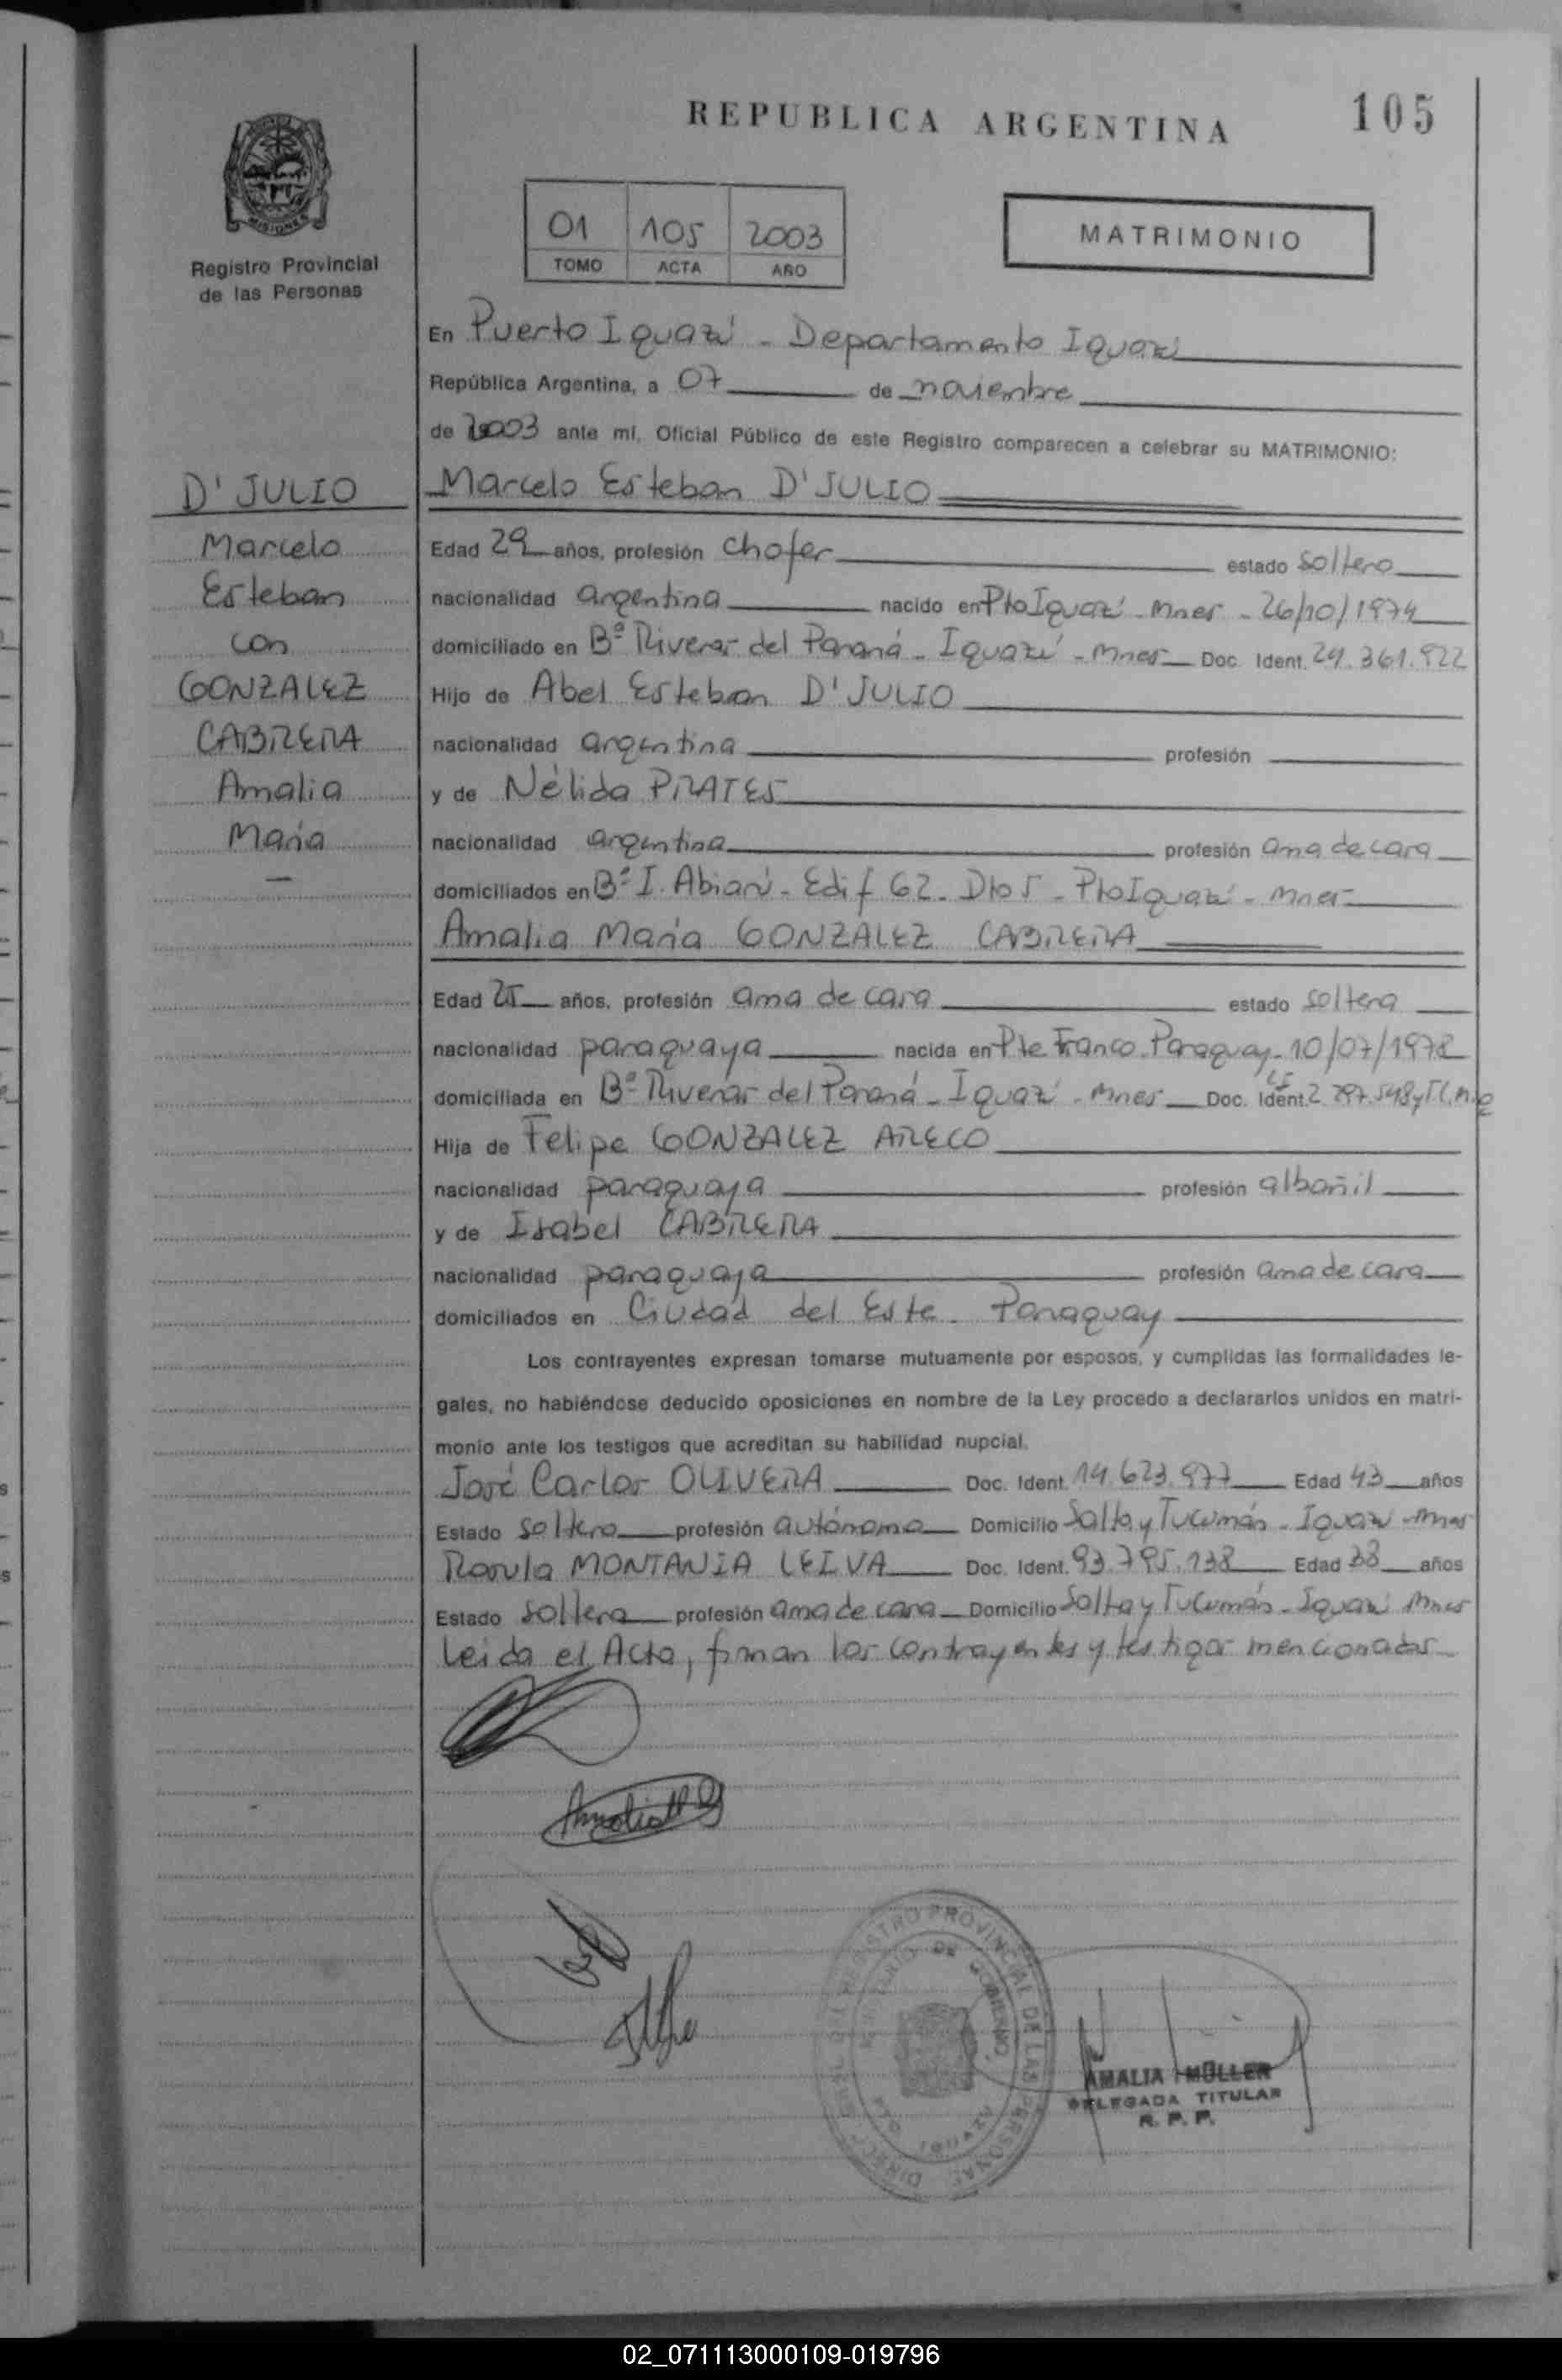 REPUBLICA ARGENTINA
105
MISIONES
Registro Provincial
de las Personas
01 105 2003
TOMO ACTA AÑO
MATRIMONIO
En Puerto Iguazú - Departamento Iguazú
República Argentina, a 07 de noviembre
de 2003 ante mí, Oficial Público de este Registro comparecen a celebrar su MATRIMONIO:
D'JULIO
Marcelo
Esteban
con
GONZALEZ
CABRERA
Amalia
María
Marcelo Esteban D'JULIO
Edad 29 años, profesión chofer estado soltero
nacionalidad argentina nacido en Pto Iguazú - Mnes - 26/10/1974
domiciliado en Bº Riveras del Paraná - Iguazú - Mnes Doc. Ident. 24.361.922
Hijo de Abel Esteban D'JULIO
nacionalidad argentina profesión
y de Nélida PRATES
nacionalidad argentina profesión ama de casa
domiciliados en Bº I. Abiarú - Edif 62 - Dto 5 - Pto Iguazú - Mnes
Amalia María GONZALEZ CABRERA
Edad 25 años, profesión ama de casa estado soltera
nacionalidad paraguaya nacida en Pte Franco Paraguay - 10/07/1978
domiciliada en Bº Riveras del Paraná - Iguazú - Mnes Doc. Ident.
Hija de Felipe GONZALEZ ARECO
nacionalidad paraguaya profesión albañil
y de Isabel CABRERA
nacionalidad paraguaya profesión ama de casa
domiciliados en Ciudad del Este - Paraguay
Los contrayentes expresan tomarse mutuamente por esposos, y cumplidas las formalidades le-
gales, no habiéndose deducido oposiciones en nombre de la Ley procedo a declararlos unidos en matri-
monio ante los testigos que acreditan su habilidad nupcial.
José Carlos OLIVERA Doc. Ident. 14.623.977 Edad 43 años
Estado soltero profesión autónomo Domicilio Salta y Tucumán - Iguazú - Mnes
Rosula MONTANIA LEIVA Doc. Ident. 93.795.138 Edad 38 años
Estado soltera profesión ama de casa Domicilio Salta y Tucumán - Iguazú Mnes
Leida el Acta, firman los contrayentes y testigos mencionados
AMALIA MÜLLER
DELEGADA TITULAR
R. P. P.
02_071113000109-019796